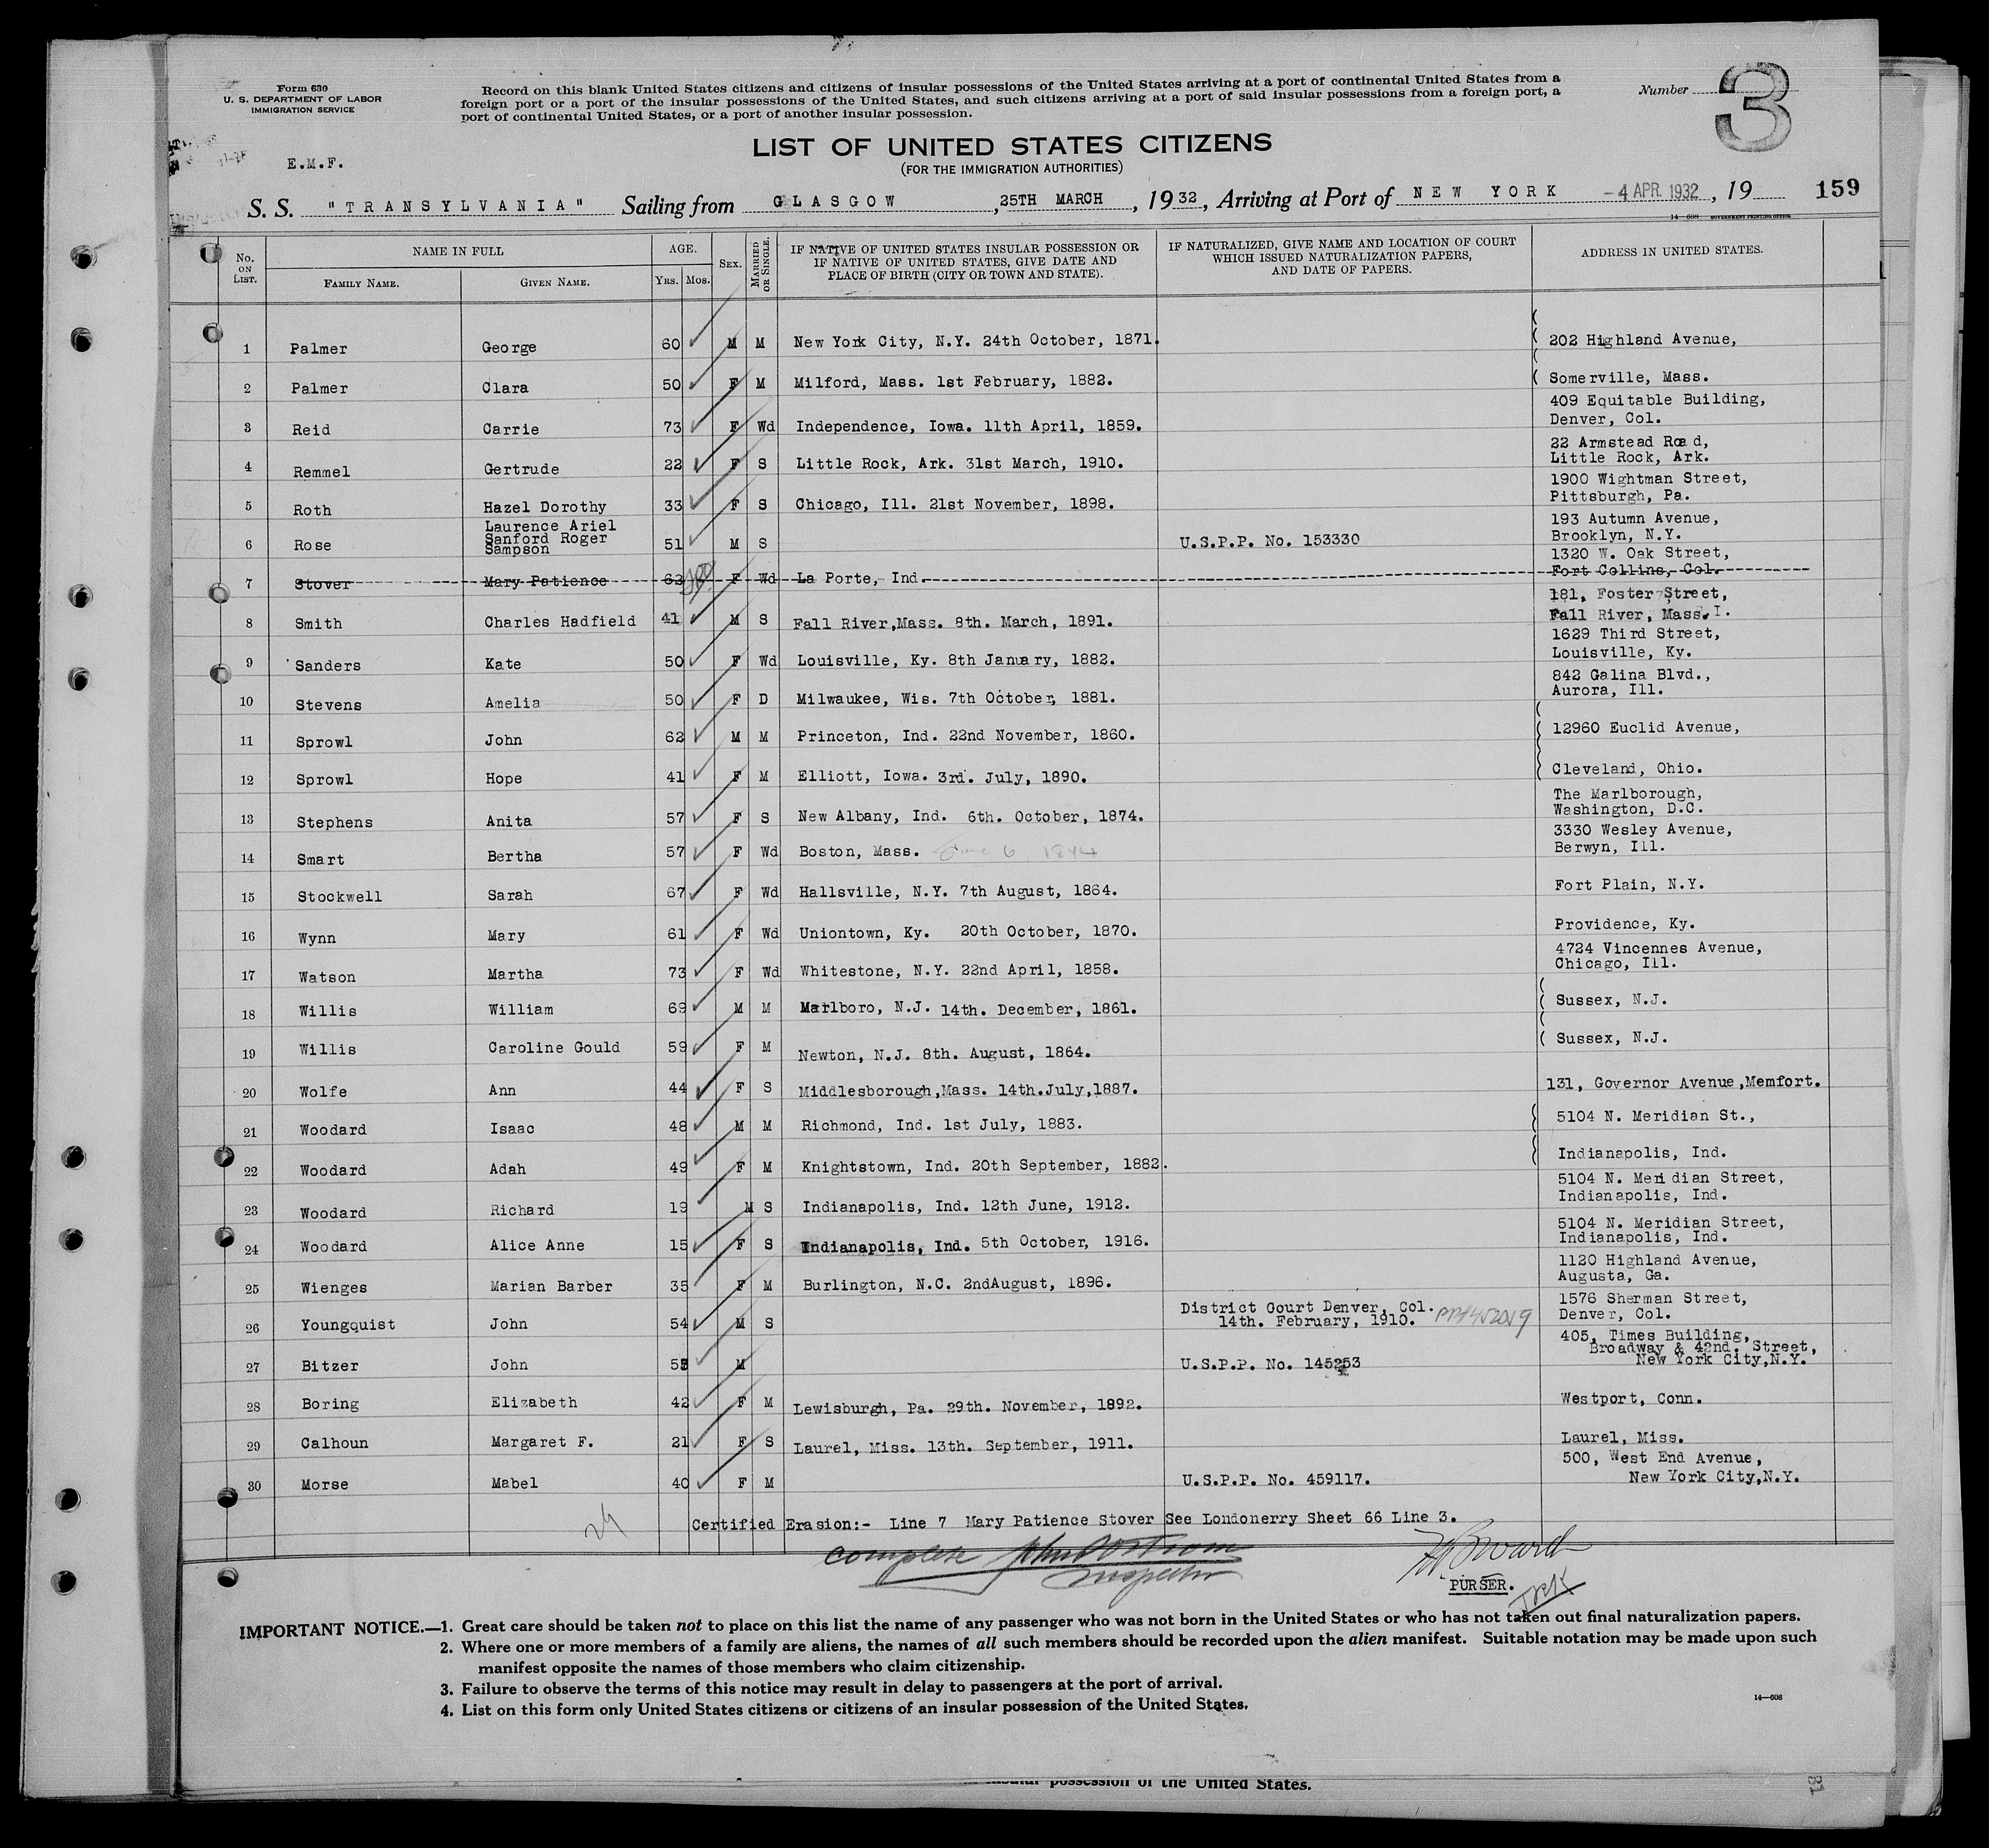 Form 630
U. S. DEPARTMENT OF LABOR
IMMIGRATION SERVICE
Record on this blank United States citizens and citizens of insular possessions of the United States arriving at a port of continental United States from a
foreign port or a port of the insular possessions of the United States, and such citizens arriving at a port of said insular possessions from a foreign port, a
port of continental United States, or a port of another insular possession.
Number 3
E.M.F.
LIST OF UNITED STATES CITIZENS
(FOR THE IMMIGRATION AUTHORITIES)
S. S. "TRANSYLVANIA" Sailing from GLASGOW, 25TH MARCH, 1932, Arriving at Port of NEW YORK -4 APR. 1932, 19 159
14—608 GOVERNMENT PRINTING OFFICE
No. ON LIST. NAME IN FULL AGE. SEX. MARRIED OR SINGLE. IF NATIVE OF UNITED STATES INSULAR POSSESSION OR IF NATIVE OF UNITED STATES, GIVE DATE AND PLACE OF BIRTH (CITY OR TOWN AND STATE). IF NATURALIZED, GIVE NAME AND LOCATION OF COURT WHICH ISSUED NATURALIZATION PAPERS, AND DATE OF PAPERS. ADDRESS IN UNITED STATES.
FAMILY NAME. GIVEN NAME. YRS. MOS.
1 Palmer George 60 M M New York City, N.Y. 24th October, 1871. 202 Highland Avenue,
2 Palmer Clara 50 F M Milford, Mass. 1st February, 1882. Somerville, Mass.
3 Reid Carrie 73 F Wd Independence, Iowa. 11th April, 1859. 409 Equitable Building, Denver, Col.
4 Remmel Gertrude 22 F S Little Rock, Ark. 31st March, 1910. 22 Armstead Road, Little Rock, Ark.
5 Roth Hazel Dorothy 33 F S Chicago, Ill. 21st November, 1898. 1900 Wightman Street, Pittsburgh, Pa.
6 Rose Laurence Ariel Sanford Roger Sampson 51 M S U.S.P.P. No. 153330 193 Autumn Avenue, Brooklyn, N.Y.
7 Stover Mary Patience 62 F Wd La Porte, Ind. 1320 W. Oak Street, Fort Collins, Col.
8 Smith Charles Hadfield 41 M S Fall River,Mass. 8th. March, 1891. 181, Foster Street, Fall River, Mass.
9 Sanders Kate 50 F Wd Louisville, Ky. 8th January, 1882. 1629 Third Street, Louisville, Ky.
10 Stevens Amelia 50 F D Milwaukee, Wis. 7th October, 1881. 842 Galina Blvd., Aurora, Ill.
11 Sprowl John 62 M M Princeton, Ind. 22nd November, 1860. 12960 Euclid Avenue,
12 Sprowl Hope 41 F M Elliott, Iowa. 3rd. July, 1890. Cleveland, Ohio.
13 Stephens Anita 57 F S New Albany, Ind. 6th. October, 1874. The Marlborough, Washington, D.C.
14 Smart Bertha 57 F Wd Boston, Mass. June 6 1874 3330 Wesley Avenue, Berwyn, Ill.
15 Stockwell Sarah 67 F Wd Hallsville, N.Y. 7th August, 1864. Fort Plain, N.Y.
16 Wynn Mary 61 F Wd Uniontown, Ky. 20th October, 1870. Providence, Ky.
17 Watson Martha 73 F Wd Whitestone, N.Y. 22nd April, 1858. 4724 Vincennes Avenue, Chicago, Ill.
18 Willis William 69 M M Marlboro, N.J. 14th. December, 1861. Sussex, N.J.
19 Willis Caroline Gould 59 F M Newton, N.J. 8th. August, 1864. Sussex, N.J.
20 Wolfe Ann 44 F S Middlesborough,Mass. 14th.July,1887. 131, Governor Avenue,Memfort.
21 Woodard Isaac 48 M M Richmond, Ind. 1st July, 1883. 5104 N. Meridian St.,
22 Woodard Adah 49 F M Knightstown, Ind. 20th September, 1882. Indianapolis, Ind.
23 Woodard Richard 19 M S Indianapolis, Ind. 12th June, 1912. 5104 N. Meridian Street, Indianapolis, Ind.
24 Woodard Alice Anne 15 F S Indianapolis, Ind. 5th October, 1916. 5104 N. Meridian Street, Indianapolis, Ind.
25 Wienges Marian Barber 35 F M Burlington, N.C. 2ndAugust, 1896. 1120 Highland Avenue, Augusta, Ga.
26 Youngquist John 54 M S District Court Denver, Col. 14th. February, 1910. PP#452019 1576 Sherman Street, Denver, Col.
27 Bitzer John M U.S.P.P. No. 145253 405, Times Building, Broadway & 42nd. Street, New York City,N.Y.
28 Boring Elizabeth 42 F M Lewisburgh, Pa. 29th. November, 1892. Westport, Conn.
29 Calhoun Margaret F. 21 F S Laurel, Miss. 13th. September, 1911. Laurel, Miss.
30 Morse Mabel 40 F M U.S.P.P. No. 459117. 500, West End Avenue, New York City,N.Y.
Certified Erasion:- Line 7 Mary Patience Stover See Londonerry Sheet 66 Line 3.
complete
Inspector
PURSER.
IMPORTANT NOTICE.—1. Great care should be taken not to place on this list the name of any passenger who was not born in the United States or who has not taken out final naturalization papers.
2. Where one or more members of a family are aliens, the names of all such members should be recorded upon the alien manifest. Suitable notation may be made upon such
manifest opposite the names of those members who claim citizenship.
3. Failure to observe the terms of this notice may result in delay to passengers at the port of arrival.
4. List on this form only United States citizens or citizens of an insular possession of the United States.
14—608
insular possession of the United States.